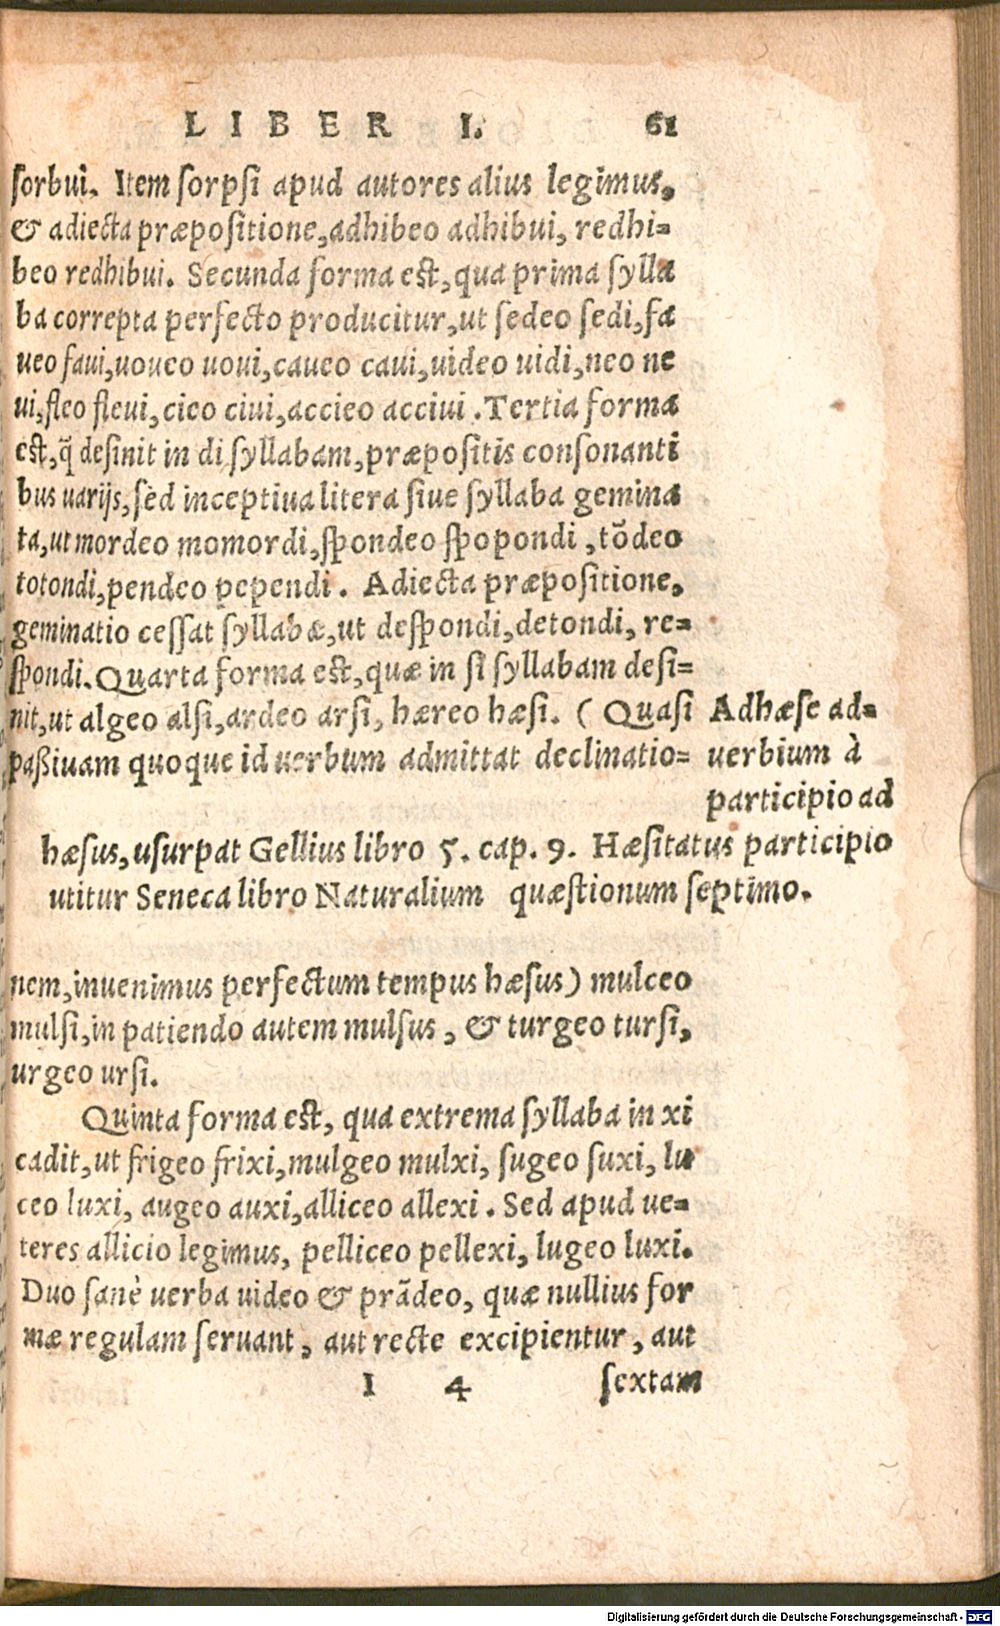 LIBER I. 61
sorbui. Item sorpsi apud autores alius legimus,
& adiecta præpositione, adhibeo adhibui, redhi=
beo redhibui. Secunda forma est, qua prima sylla
ba correpta perfecto producitur, ut sedeo sedi, fa
ueo faui, uoueo uoui, caueo caui, uideo uidi, neo ne
ui, fleo fleui, cieo ciui, accieo acciui. Tertia forma
est, q̃ desinit in di syllabam, præpositis consonanti
bus uarijs, sed inceptiua litera siue syllaba gemina
ta, ut mordeo momordi, spondeo spopondi, tõdeo
totondi, pendeo pependi. Adiecta præpositione,
geminatio cessat syllabæ, ut despondi, detondi, re=
spondi. Quarta forma est, quæ in si syllabam desi=
nit, ut algeo alsi, ardeo arsi, hæreo hæsi. (Quasi
paßiuam quoque id uerbum admittat declinatio=
Adhæse ad=
verbium à
participio ad
hæsus, usurpat Gellius libro 5. cap. 9. Hæsitatus participio
utitur Seneca libro Naturalium quæstionum septimo.
nem, inuenimus perfectum tempus hæsus) mulceo
mulsi, in patiendo autem mulsus, & turgeo tursi,
urgeo ursi.
Quinta forma est, qua extrema syllaba in xi
cadit, ut frigeo frixi, mulgeo mulxi, sugeo suxi, lu
ceo luxi, augeo auxi, alliceo allexi. Sed apud ue=
teres allicio legimus, pelliceo pellexi, lugeo luxi.
Duo sanè uerba uideo & prãdeo, quæ nullius for
mæ regulam seruant, aut recte excipientur, aut
I 4 sextam
Digitalisierung gefördert durch die Deutsche Forschungsgemeinschaft - DFG